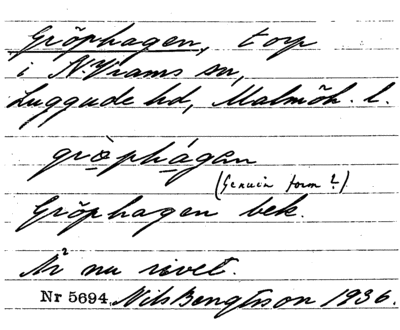 Gröphagen, torp
i N. Vrams sn,
Luggude hd, Malmöh. l.
grò̱phá̱gan
(Genuin form?)
Gröphagen bek.
Är nu rivet.
Nr 5694. Nils Bengtsson 1936.